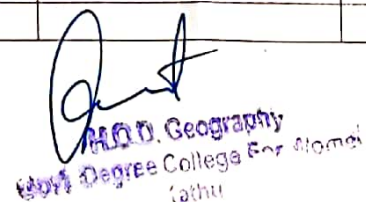 H.O.D. Geography
Govt Degree College For Women
Kathua